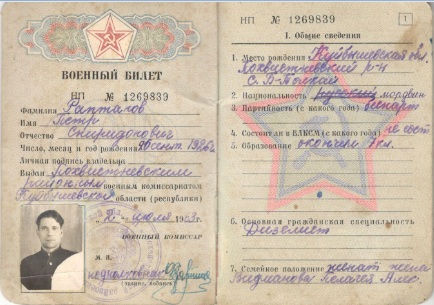 ВОЕННЫЙ БИЛЕТ
НП № 1269839
Фамилия
Имя Петр
Отчество Спиридонович
Число, месяц и год рождения
Личная подпись владельца
Выдан Похвистневским
районным военным комиссариатом
Куйбышевской области (республики)
июля
ВОЕННЫЙ КОМИССАР
подполковник
(звание, подпись)
НП № 1269839
1
I. Общие сведения
1. Место рождения Куйбышевская обл.
Похвистневский р-н
2. Национальность мордвин
3. Партийность (с какого года)
4. Состоял ли в ВЛКСМ (с какого года) не сост
5. Образование окончил 7 кл.
6. Основная гражданская специальность
Дизелист
7. Семейное положение женат жена